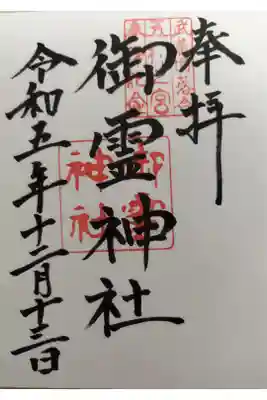 奉拝
御霊神社
令和五年十二月十三日